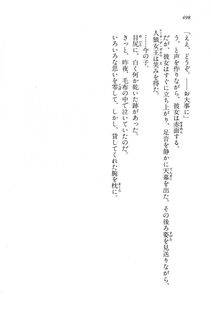 698
「ええ、どうぞ。――お大事に」
う、と声を作りながら、彼女は赤面する。
だが、彼女はすぐに立ち上がり、
人狼女王は笑みを得た。
足音を静かに天幕を出た。その後ろ姿を見送りながら、
……今の子。
目尻に、白く何か乾いた跡があった。
きっと、昨夜、毛布の中で泣いていたのだろう。
いろいろな思いを零して、しかし、貸してくれた腕を枕に。